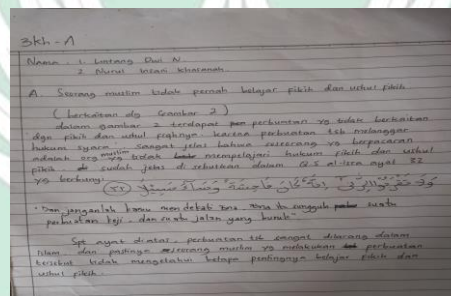 3kh-A
Nama : 1. Lintang Dwi N.
2. Nurul Insani Khasanah
A. Seorang muslim tidak pernah belajar fikih dan ushul fikih
(berkaitan dg Gambar 2)
dalam gambar 2 terdapat perbuatan yg tidak berkaitan
dgn fikih dan ushul fiqhnya. karena perbuatan tsb melanggar
hukum syara'. sangat jelas bahwa seseorang yg berpacaran
adalah org muslim yg tidak mempelajari hukum fikih dan ushul
fikih. sudah jelas di sebutkan dalam Q.S al-isra ayat 32
yg berbunyi :
وَلَا تَقْرَبُوا الزِّنٰى اِنَّهٗ كَانَ فَاحِشَةً وَسَاۤءَ سَبِيْلًا (٣٢)
" Dan janganlah kamu mendekati zina, zina itu sungguh suatu
perbuatan keji, dan suatu jalan yang buruk "
Spt ayat diatas, perbuatan tsb sangat dilarang dalam
Islam. dan pastinya seseorang muslim yg melakukan perbuatan
tersebut tidak mengetahui betapa pentingnya belajar fikih dan
ushul fikih.